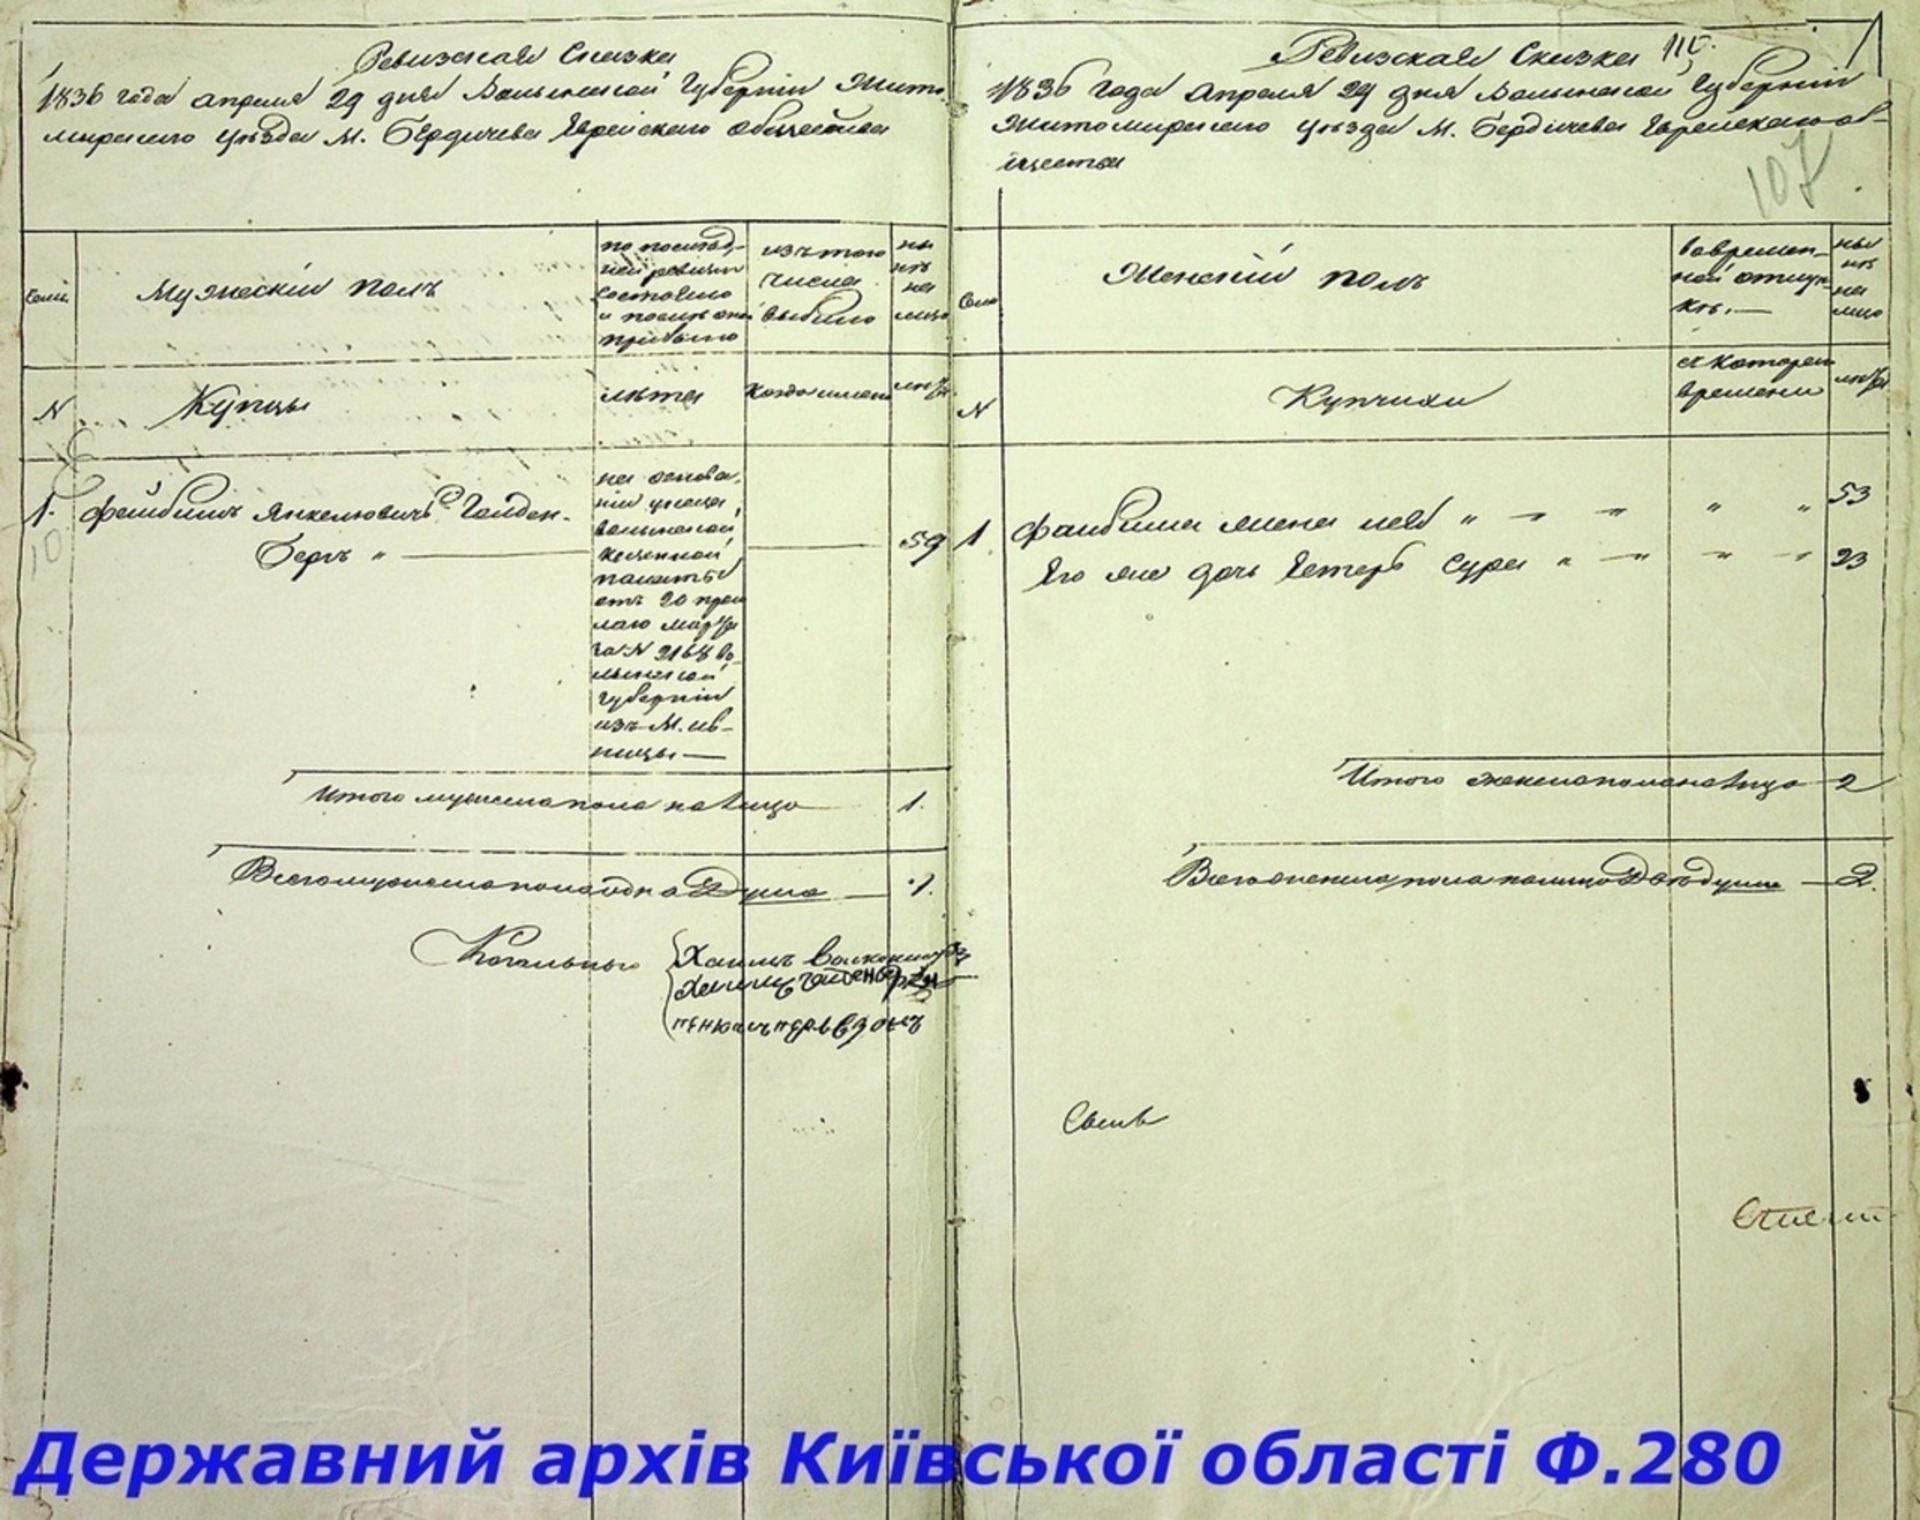 Ревизская Сказка
1836 года апреля 29 дня Волынской Губерніи Жито-
мирского уѣзда М. Бердичева Еврейского общества
Семьи
Мужескій полъ
по послѣд-
ней ревизіи
состояло
и послѣ оной
прибыло
изъ того
числа
выбыло
ны
нѣ
на
лицо
N
Купцы
лѣта
Когда именно
лѣта
1. Файбишъ Янкелювичъ Гольден-
бергъ "
на основа-
ніи указа
волынской
казенной
палаты
отъ 20 прош
лаго марта
за N 2168 во-
лынской
Губерніи
изъ М. ив-
ницы
59
Итого мужеска пола на лицо 1.
Всего мужеска пола одна Душа 1.
Кагальные
Хаимъ
Ревизская Сказка
115.
1836 Года апреля 29 дня Волынской Губерніи
Житомирского уѣзда М. Бердичева Еврейского об-
щества
107
Семьи
Женскій полъ
во времен-
ной отлуч-
кѣ.
ны
нѣ
на
лицо
N
Купчихи
съ котораго
времени
лѣта
1 Файбиша жена " " " " " 53
Его же дочь Естеръ Сура " " " " 23
Итого женска пола на лицо 2
Всего женска пола на лицо Двѣ души 2.
Державний архів Київської області Ф.280